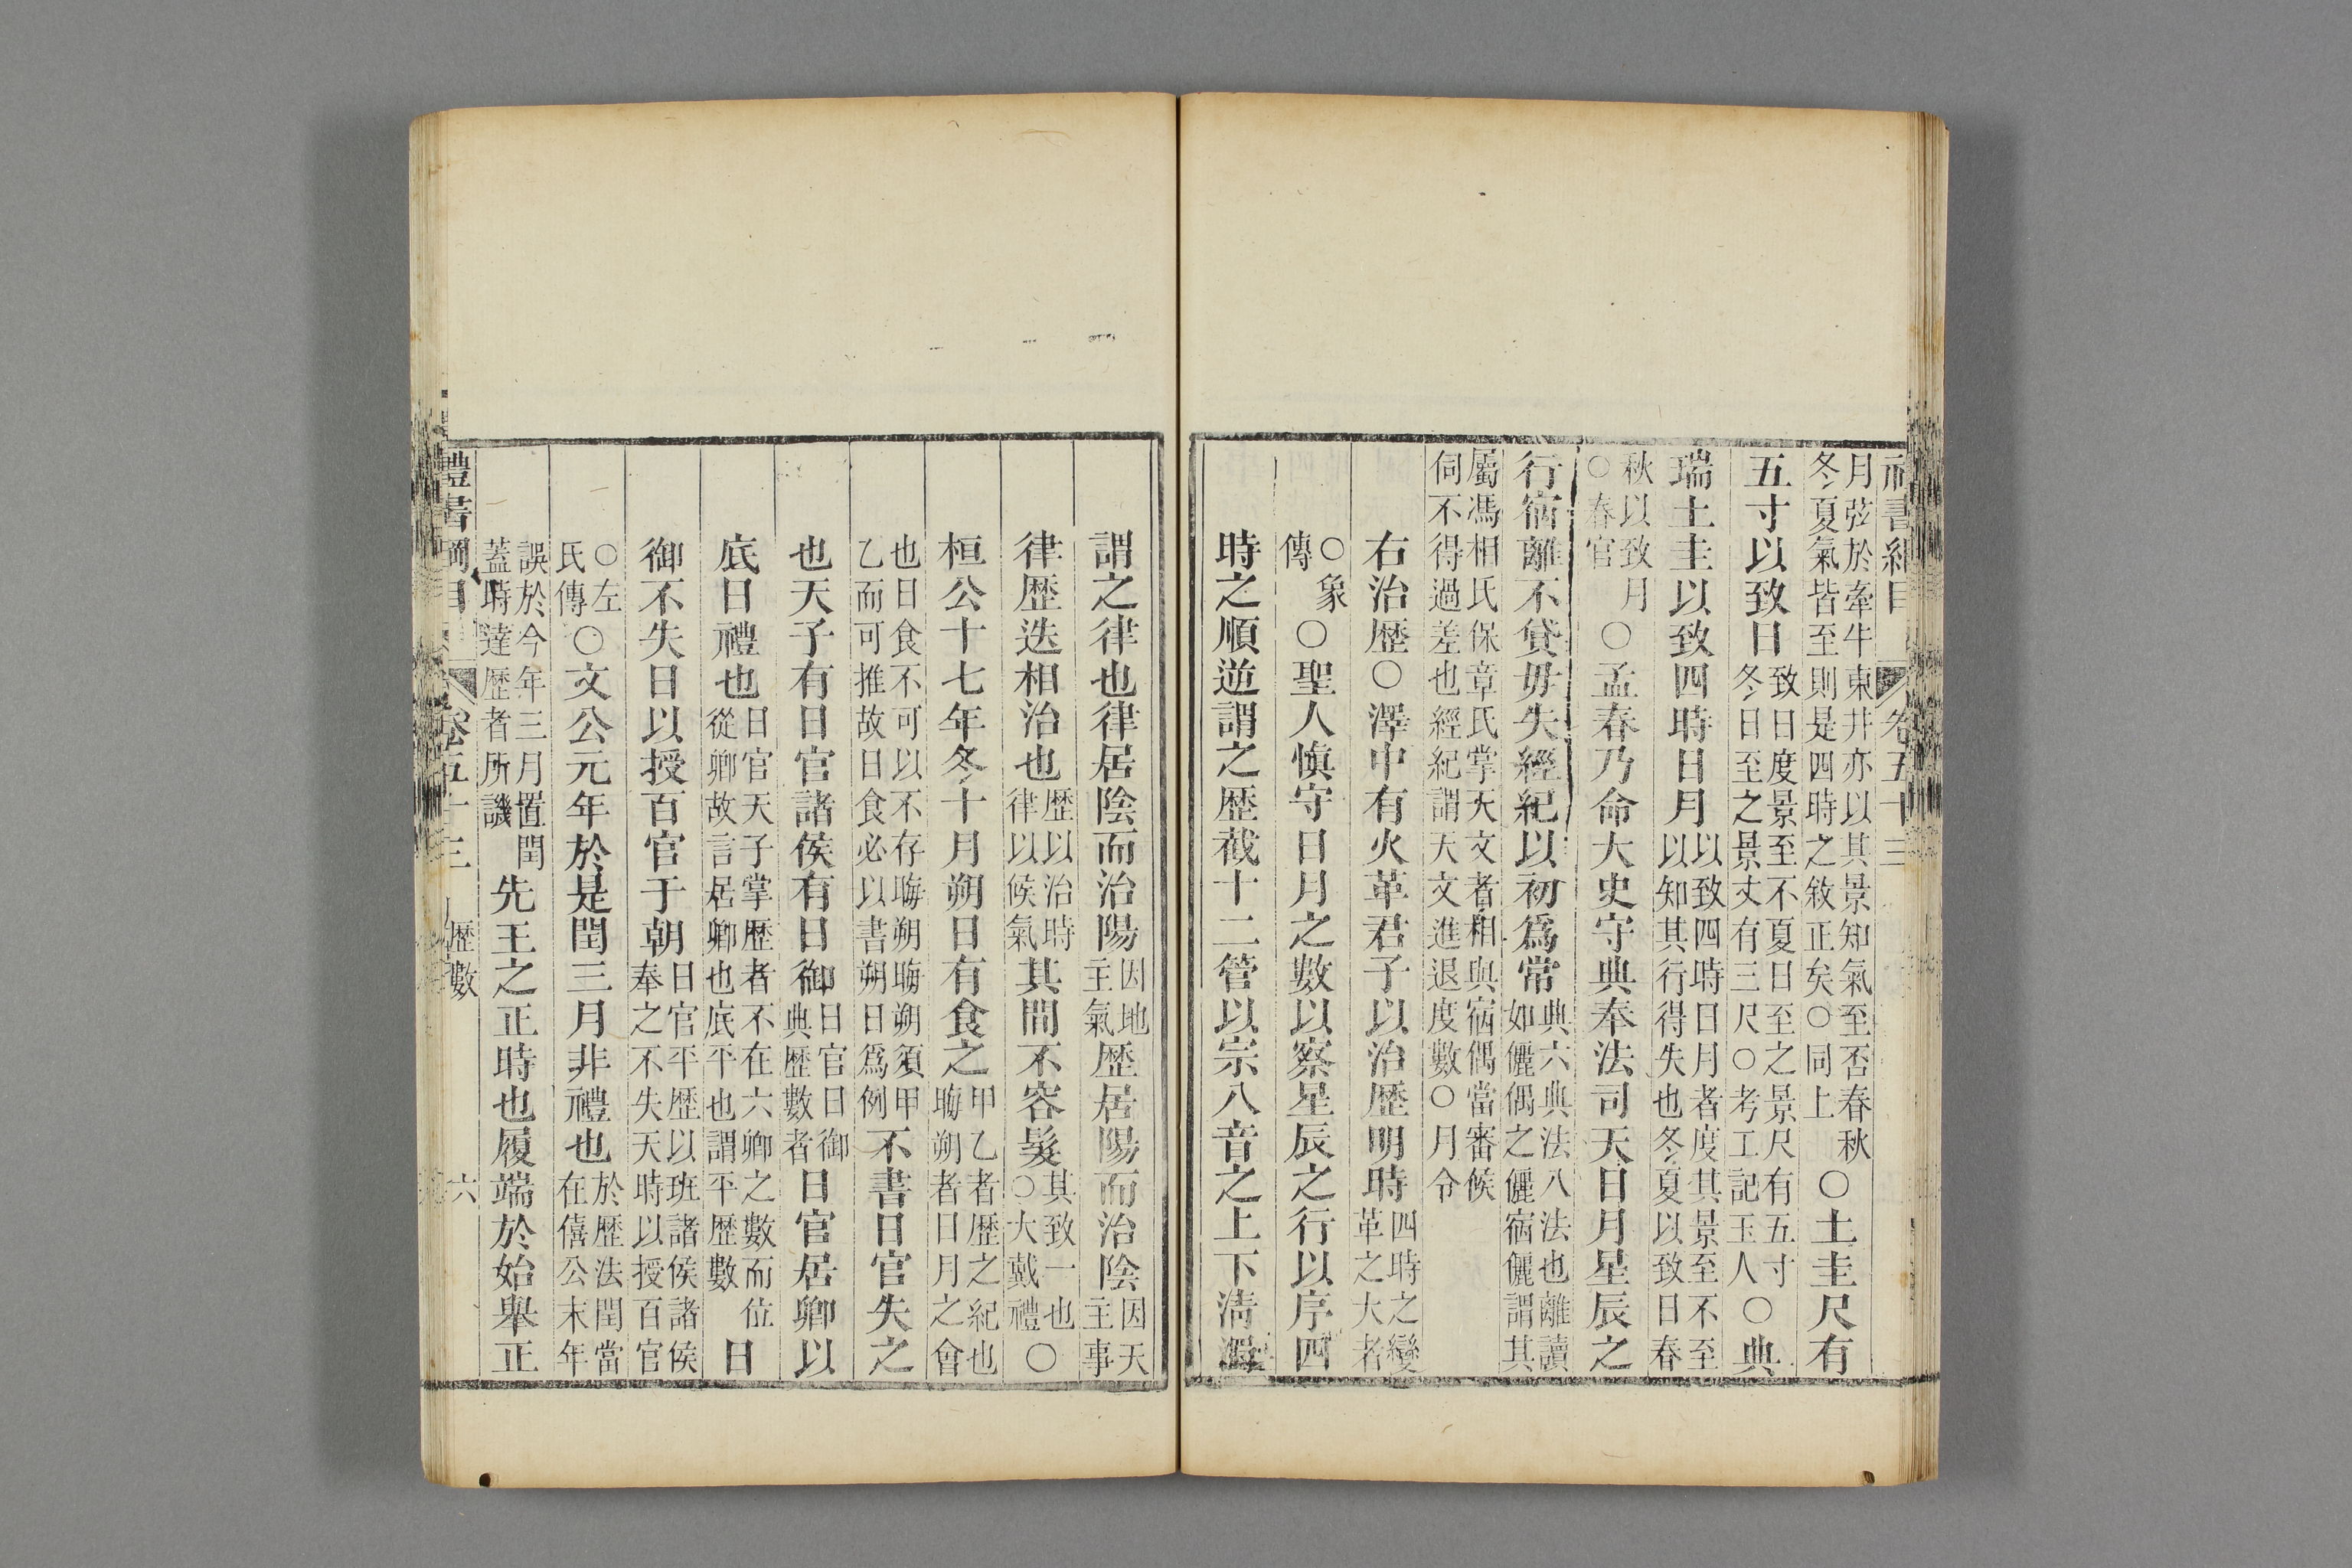 書綱目 卷五十三
月弦於牽牛東井亦以其景知氣至否春秋冬夏氣皆至則是四時之敘正矣○同上○土圭尺有
五寸以致日致日度景至不夏日至之景尺有五寸冬日至之景丈有三尺○考工記玉人○典
瑞土圭以致四時日月以致四時日月者度其景至不至以知其行得失也冬夏以致日春
秋以致月○春官○孟春乃命大史守典奉法司天日月星辰之
行宿離不貸毋失經紀以初爲常典六典法八法也離讀如儷偶之儷宿儷謂其
屬馮相氏保章氏掌天文者相與宿偶當審候伺不得過差也經紀謂天文進退度數○月令
右治歷○澤中有火革君子以治歷明時四時之變革之大者
○象傳○聖人慎守日月之數以察星辰之行以序四
時之順逆謂之歷截十二管以宗八音之上下淸濁
謂之律也律居陰而治陽因地主氣歷居陽而治陰因天主事
律歷迭相治也歷以治時律以候氣其間不容髮其致一也○大戴禮○
桓公十七年冬十月朔日有食之甲乙者歷之紀也晦朔者日月之會
也日食不可以不存晦朔晦朔須甲乙而可推故日食必以書朔日爲例不書日官失之
也天子有日官諸侯有日御日官日御典歷數者日官居卿以
底日禮也日官天子掌歷者不在六卿之數而位從卿故言居卿也底平也謂平歷數日
御不失日以授百官于朝日官平歷以班諸侯諸侯奉之不失天時以授百官
○左氏傳○文公元年於是閏三月非禮也於歷法閏當在僖公末年
誤於今年三月置閏蓋時達歷者所譏先王之正時也履端於始舉正
禮書綱目 卷五十三 歷數 六